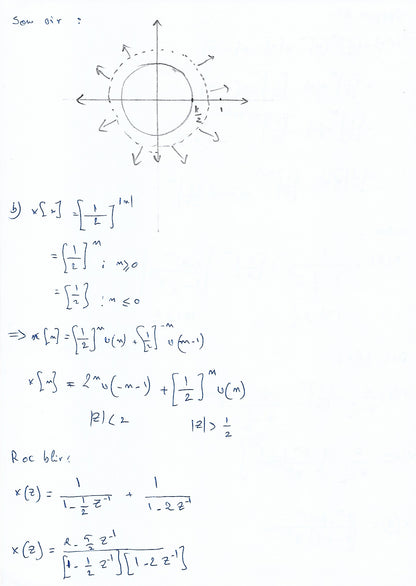 Som vir :
1/2 1
b) x[n] = [1/2]^|n|
= [1/2]^n ; n≥0
= [1/2] ; n≤0
=> x[n] = [1/2]^n u(n) + [1/2]^-n u(n-1)
x[n] = 2^n u(-n-1) + [1/2]^n u(n)
|z|<2 |z|>1/2
Roc blir:
x(z) = 1/(1-1/2 z^-1) + 1/(1-2z^-1)
x(z) = (2-5/2 z^-1)/([1-1/2 z^-1][1-2z^-1])